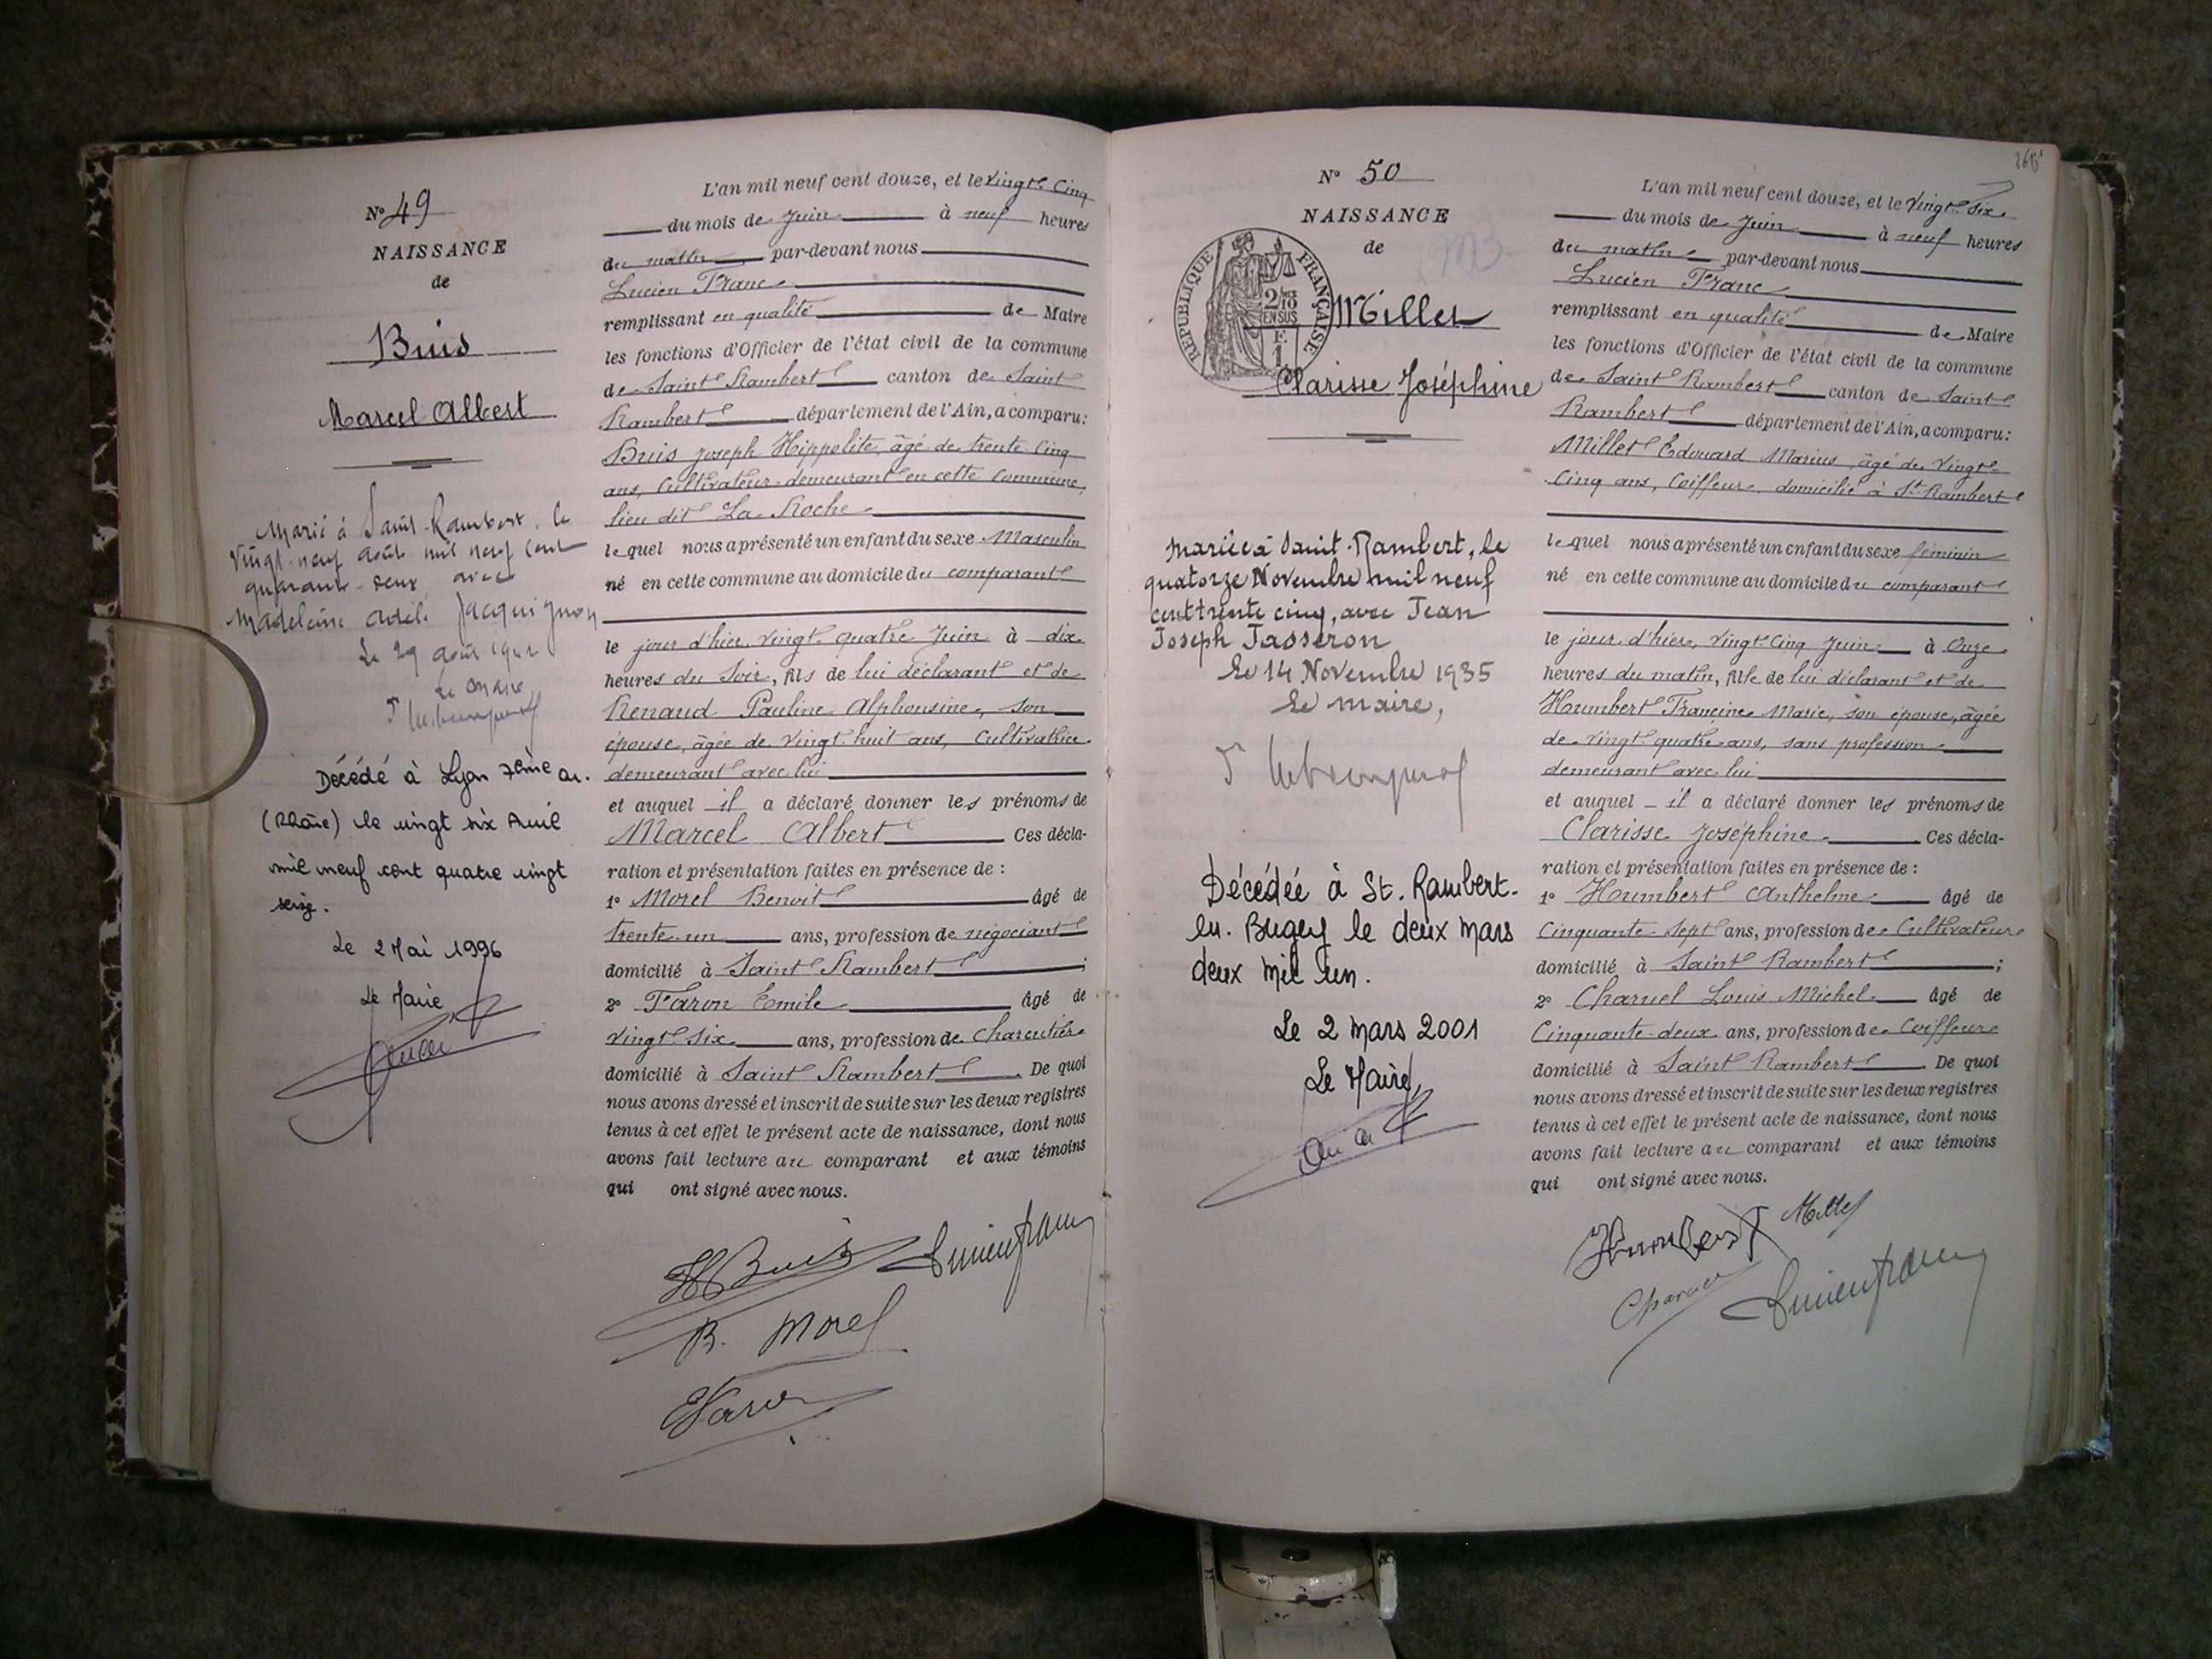 N° 49
NAISSANCE
de
Buis
Marcel Albert
Marié à Saint-Rambert, le
vingt-neuf août mil neuf cent
quarante-deux avec
Madeleine Adèle Jacquignon
Le 29 août 1942
Le Maire,
Décédé à Lyon 7ème ar.
(Rhône) le vingt six Avril
mil neuf cent quatre vingt
seize.
Le 2 Mai 1996
Le Maire
L'an mil neuf cent douze, et le vingt-cinq
du mois de Juin à neuf heures
du matin par-devant nous
Lucien Franc
remplissant en qualité de Maire
les fonctions d'Officier de l'état civil de la commune
de Saint Rambert canton de Saint
Rambert département de l'Ain, a comparu:
Buis Joseph Hippolite, âgé de trente-cinq
ans, Cultivateur demeurant en cette commune,
lieu dit La Roche
lequel nous a présenté un enfant du sexe Masculin
né en cette commune au domicile du comparant
le jour d'hier, vingt-quatre Juin à dix
heures du soir, fils de lui déclarant et de
Renaud Pauline Alphonsine, son
épouse, âgée de vingt-huit ans, Cultivatrice
demeurant avec lui
et auquel il a déclaré donner les prénoms de
Marcel Albert Ces décla-
ration et présentation faites en présence de :
1° Morel Benoit âgé de
trente-un ans, profession de négociant
domicilié à Saint Rambert ;
2° Faron Emile âgé de
vingt-six ans, profession de Charcutier
domicilié à Saint Rambert. De quoi
nous avons dressé et inscrit de suite sur les deux registres
tenus à cet effet le présent acte de naissance, dont nous
avons fait lecture au comparant et aux témoins
qui ont signé avec nous.
H Buis Lucien Franc
B. Morel
E Faron
268
N° 50
NAISSANCE
de
MB
RÉPUBLIQUE FRANÇAISE
2/10
EN SUS
F.
1
Millet
Clarisse Joséphine
Mariée à Saint-Rambert, le
quatorze Novembre mil neuf
cent trente cinq, avec Jean
Joseph Tasseron
Le 14 Novembre 1935
Le maire,
Décédée à St. Rambert-
en-Bugey le deux mars
deux mil un.
Le 2 mars 2001
Le Maire,
L'an mil neuf cent douze, et le vingt-six
du mois de Juin à neuf heures
du matin par-devant nous
Lucien Franc
remplissant en qualité de Maire
les fonctions d'Officier de l'état civil de la commune
de Saint Rambert canton de Saint
Rambert département de l'Ain, a comparu:
Millet Edouard Marius, âgé de vingt-
cinq ans, Coiffeur domicilié à St Rambert
lequel nous a présenté un enfant du sexe féminin
né en cette commune au domicile du comparant
le jour d'hier, vingt-cinq Juin à Onze
heures du matin, fille de lui déclarant et de
Humbert Francine Marie, son épouse, âgée
de vingt-quatre ans, sans profession
demeurant avec lui
et auquel il a déclaré donner les prénoms de
Clarisse Joséphine. Ces décla-
ration et présentation faites en présence de :
1° Humbert Anthelme âgé de
Cinquante-sept ans, profession de Cultivateur
domicilié à Saint Rambert ;
2° Charvel Louis Michel âgé de
Cinquante-deux ans, profession de Coiffeur
domicilié à Saint Rambert. De quoi
nous avons dressé et inscrit de suite sur les deux registres
tenus à cet effet le présent acte de naissance, dont nous
avons fait lecture au comparant et aux témoins
qui ont signé avec nous.
Humbert Millet
Charvel Lucien Franc